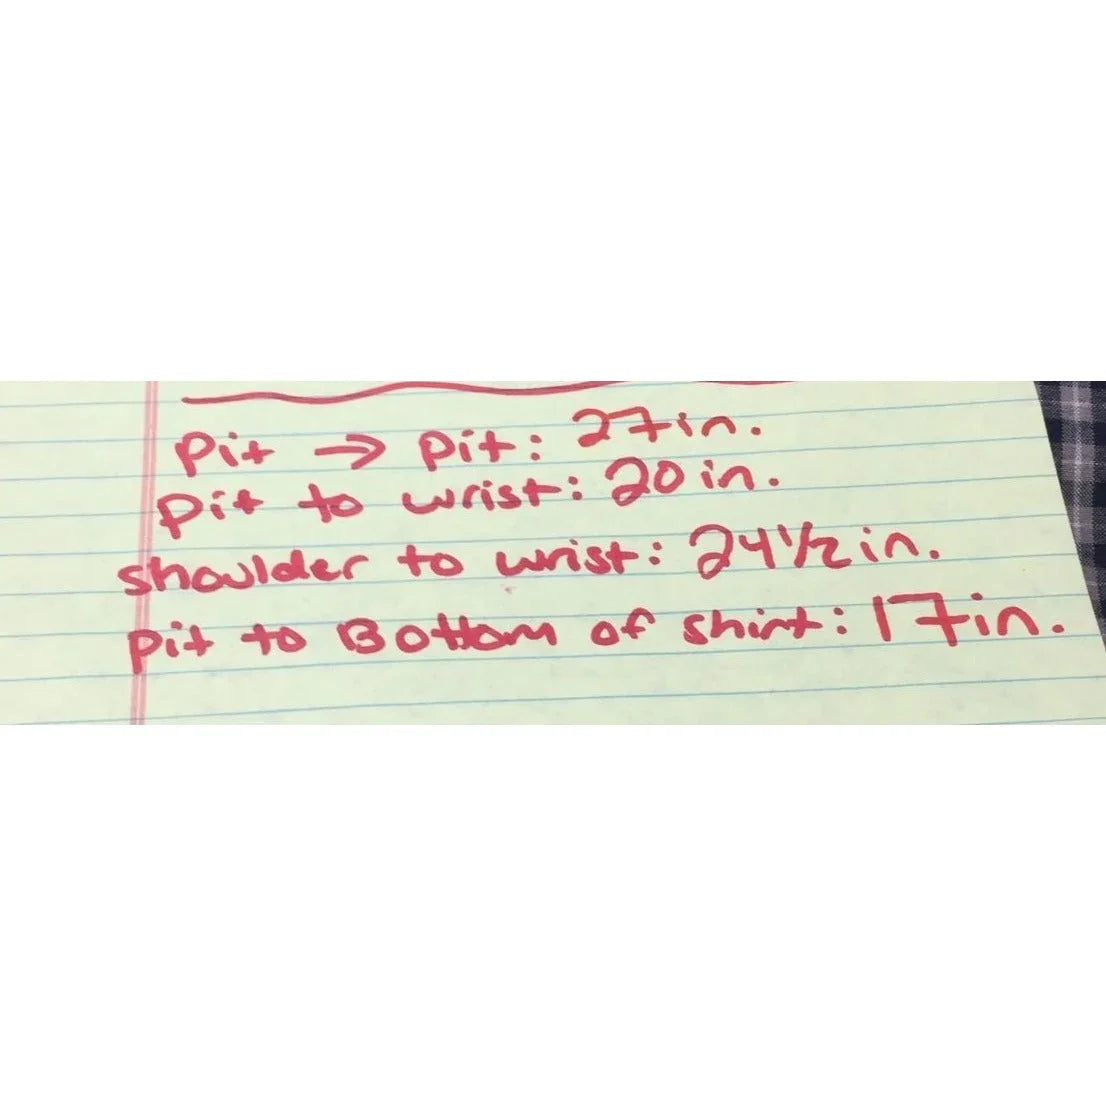 Pit → pit: 27in.
Pit to wrist: 20 in.
shoulder to wrist: 24 1/2 in.
pit to Bottom of shirt: 17in.